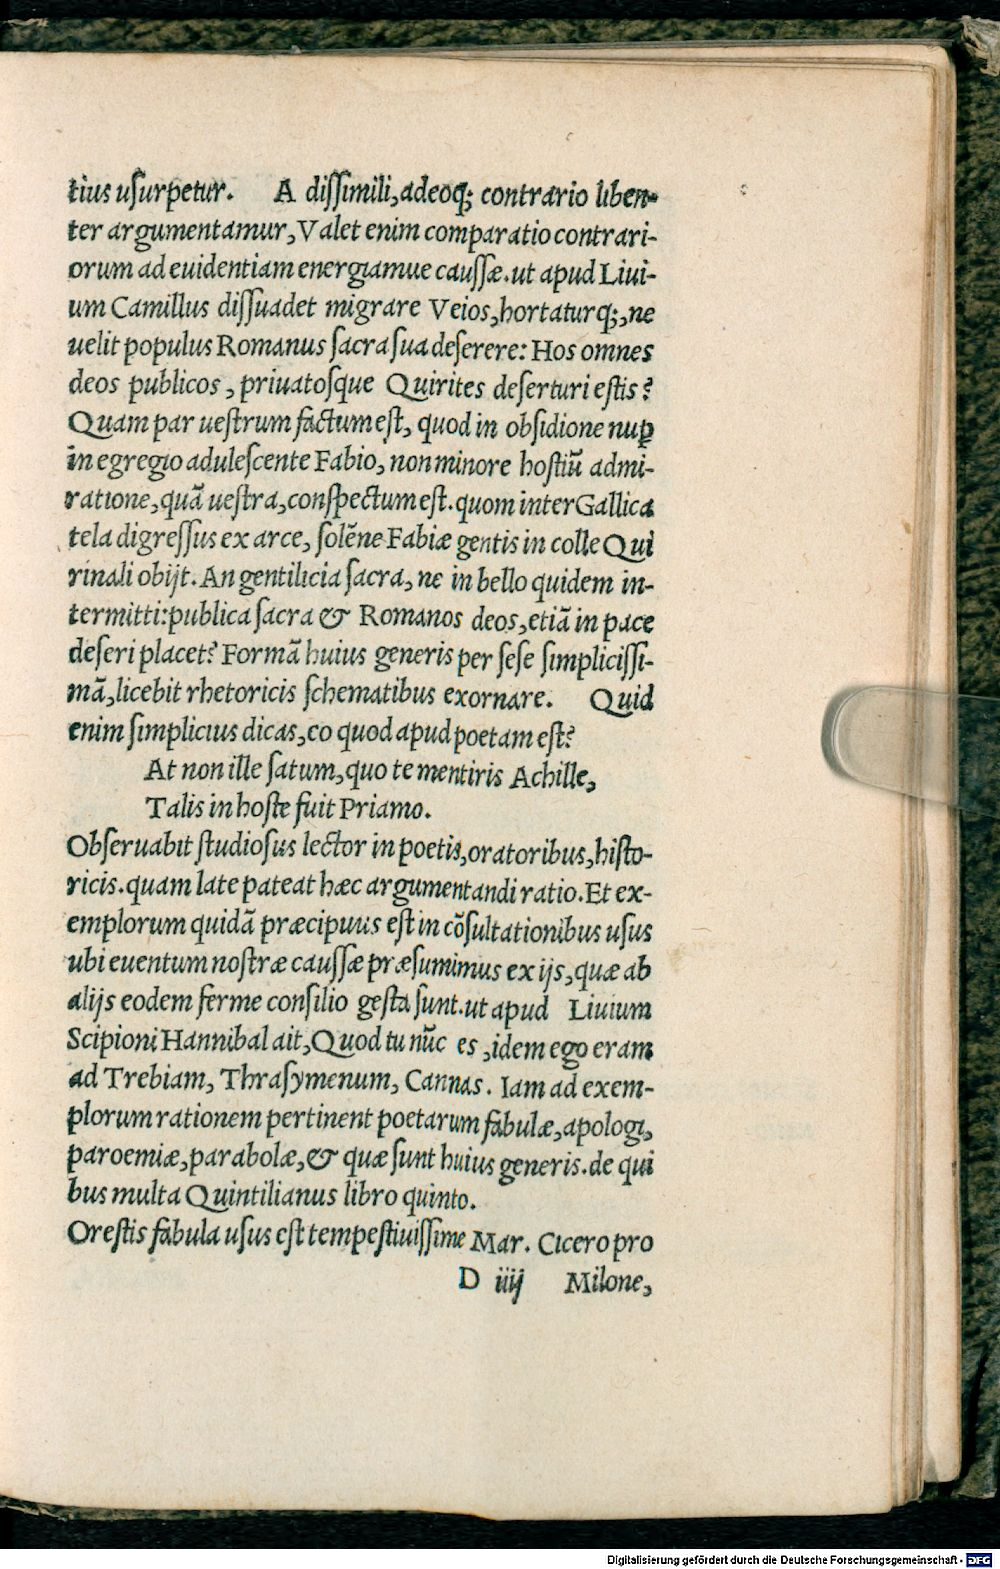 tius uſurpetur. A diſſimili, adeoq; contrario liben-
ter argumentamur, Valet enim comparatio contrari-
orum ad euidentiam energiamue cauſſæ. ut apud Liui-
um Camillus diſſuadet migrare Veios, hortaturq;, ne
uelit populus Romanus ſacra ſua deſerere: Hos omnes
deos publicos, priuatoſque Quirites deſerturi eſtis?
Quam par ueſtrum factum eſt, quod in obſidione nuꝑ
in egregio aduleſcente Fabio, non minore hoſtiũ admi-
ratione, quã ueſtra, conſpectum eſt. quom inter Gallica
tela digreſſus ex arce, ſolẽne Fabiæ gentis in colle Qui
rinali obijt. An gentilicia ſacra, ne in bello quidem in-
termitti: publica ſacra & Romanos deos, etiã in pace
deſeri placet? Formã huius generis per ſeſe ſimpliciſſi-
mã, licebit rhetoricis ſchematibus exornare. Quid
enim ſimplicius dicas, eo quod apud poetam eſt?
At non ille ſatum, quo te mentiris Achille,
Talis in hoſte fuit Priamo.
Obſeruabit ſtudioſus lector in poetis, oratoribus, hiſto-
ricis. quam late pateat hæc argumentandi ratio. Et ex-
emplorum quidã præcipuus eſt in cõſultationibus uſus
ubi euentum noſtræ cauſſæ præſumimus ex ijs, quæ ab
alijs eodem ferme conſilio geſta ſunt. ut apud Liuium
Scipioni Hannibal ait, Quod tu nũc es, idem ego eram
ad Trebiam, Thraſymenum, Cannas. Iam ad exem-
plorum rationem pertinent poetarum fabulæ, apologi,
paroemiæ, parabolæ, & quæ ſunt huius generis. de qui
bus multa Quintilianus libro quinto.
Oreſtis fabula uſus eſt tempeſtiuiſſime Mar. Cicero pro
D iiij Milone,
Digitalisierung gefördert durch die Deutsche Forschungsgemeinschaft - DFG